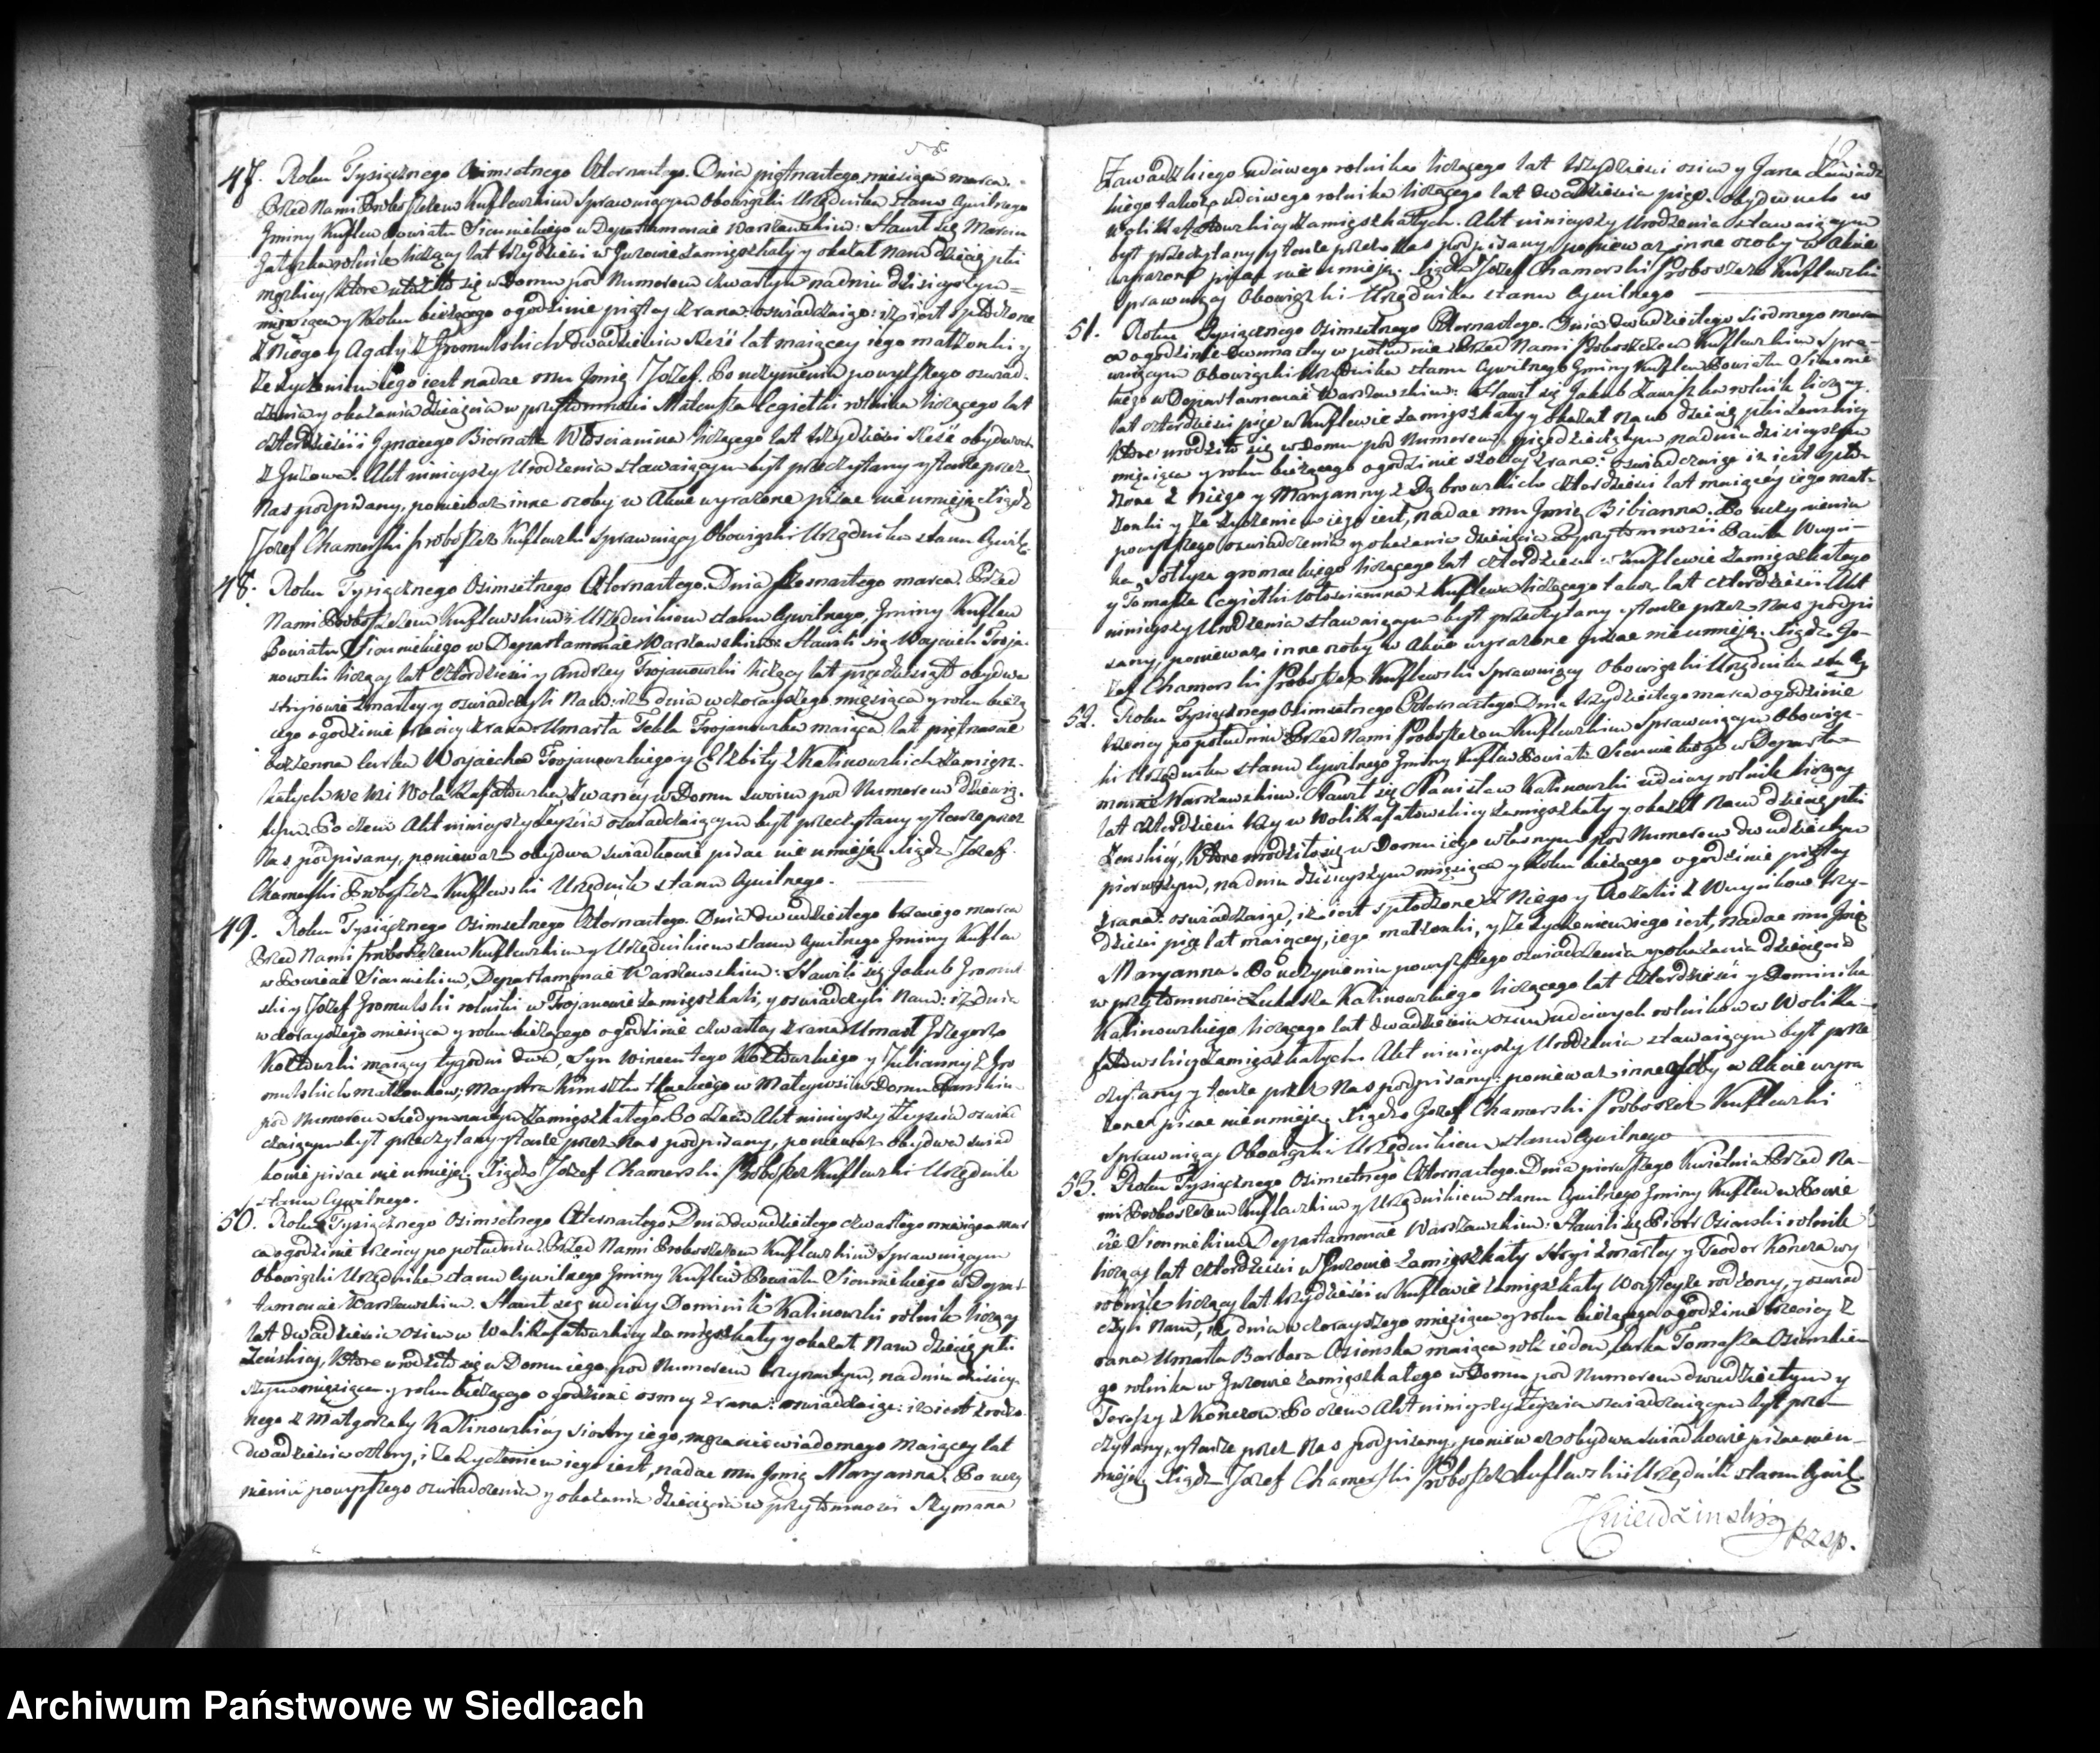 47. Roku Tysiącznego Osimsetnego Czternastego. Dnia piętnastego miesiąca marca.
Przed Nami Proboszczem Kuflewskim Sprawuiącym Obowiązki Urzędnika stanu Cywilnego
Gminy Kuflew Powiatu Siennickiego w Departamencie Warszawskim: Stawił się Marcin
rolnik liczący lat trzydzieści w Guzowie zamięszkały y okazał nam dziecię płci
męzkiey, które urodziło się w Domu pod Numerem czwartym na dniu dzisieyszym
miesiąca y Roku bieżącego o godzinie piątey z rana: oswiadczaiąc: iż iest spłodzone
z Niego y Agaty z Gromulskich dwadzieścia sześć lat maiącey iego małżonki y
że życzeniem iego iest nadać mu Jmię Jozef. Po uczynieniu powyższego oswiad-
czenia y okazania dziecięcia w przytomności Mateusza Cegiełki rolnika liczącego lat
czterdzieści i Jgnacego Biernata Włościanina liczącego lat trzydzieści sześć obydwoch
z Guzowa. Akt ninieyszy Urodzenia stawaiącym był przeczytany y tenże przez
Nas podpisany, ponieważ inne osoby w Akcie wyrażone pisać nieumieją. Xiądz
Jozef Chamerski Proboszcz Kuflewski Sprawuiący Obowiązki Urzędnika stanu Cywil:
48. Roku Tysiącznego Osimsetnego Czternastego. Dnia szesnastego marca. Przed
Nami Proboszczem Kuflewskim y Urzędnikiem stanu Cywilnego, Gminy Kuflew
Powiatu Siennickiego w Departamencie Warszawskim: Stawili się Woyciech Troja-
nowski liczący lat czterdzieści y Andrzey Trojanowski liczący lat pięcdziesiąt obydwa
stryiowie zmarłey y oswiadczyli Nam: iż dnia wczorayszego miesiąca y roku bieżą
cego o godzinie trzeciey z rana Umarła Tekla Trojanowska maiąca lat piętnaście
bezżenna corka Woyciecha Trojanowskiego y Elżbiety z Kalinowskich zamięsz-
kałych we Wsi Wola Rafałowska zwaney w Domu swoim pod Numerem dziewią-
tym. Po czem Akt ninieyszy Zeyścia oswiadczaiącym był przeczytany y tenże przez
Nas podpisany, ponieważ obydwa swiadkowie pisać nie umieją. Xiądz Jozef
Chamerski Proboszcz Kuflewski Urzędnik stanu Cywilnego.
49. Roku Tysiącznego Osimsetnego Czternastego. Dnia dwudziestego trzeciego marca
Przed Nami Proboszczem Kuflewskim y Urzędnikiem stanu Cywilnego Gminy Kuflew
w Powiecie Siennickim, Departamencie Warszawskim: Stawili się Jakub Gromul
ski y Jozef Gromulski rolniki w Trojanowie zamięszkali, y oswiadczyli Nam: iż dnia
wczorayszego miesiąca y roku bieżącego o godzinie czwartey z rana Umarł Grzegorz
maiący tygodni dwa, Syn Wincentego y Julianny z Gro
mulskich małżonkow; Maystra Kunsztu tkackiego w w Domu
pod Numerem siedymnastym zamięszkałego. Po czem Akt ninieyszy Zeyścia oswiad
czaiącym był przeczytany y tenże przez Nas podpisany, ponieważ obydwa swiad
kowie pisać nie umieją. Xiądz Jozef Chamerski Proboszcz Kuflewski Urzędnik
stanu Cywilnego.
50. Roku Tysiącznego Osimsetnego Czternastego. Dnia dwudziestego czwartego miesiąca mar
ca o godzinie trzeciey po południu. Przed Nami Proboszczem Kuflewskim Sprawuiącym
Obowiązki Urzędnika stanu Cywilnego Gminy Kuflew Powiatu Siennickiego w Depar-
tamencie Warszawskim. Stawił się uczciwy Dominik Kalinowski rolnik liczący
lat dwadzieścia osim w Woli Rafałowskiey zamięszkały y okazał Nam dziecię płci
Zeńskiey, Które urodziło się w Domu iego pod Numerem trzynastym, na dniu dzisiey-
szym miesiąca y roku bieżącego o godzinie osmey z rana: oswiadczaiąc: iż iest
nego z Małgorzaty Kalinowskiey siostry iego, maiącey lat
dwadzieścia cztery, i że życzeniem iego iest, nadać mu Jmię Maryanna. Po uczy
nieniu powyższego oswiadczenia y okazania dziecięcia w przytomności Szymana
Zawadzkiego uczciwego rolnika liczącego lat trzydzieści osim y Jana Zawadz
kiego także uczciwego rolnika liczącego lat dwadzieścia pięć. obydwuch w
Woli Rafałowskiey zamięszkałych. Akt ninieyszy Urodzenia stawaiącym
był przeczytany y tenże przez Nas podpisany, ponieważ inne osoby w Akcie
wyrażone pisać nie umieją. Xiądz Jozef Chamerski Proboszcz Kuflewski
Sprawuiący Obowiązki Urzędnika stanu Cywilnego
51. Roku Tysiącznego Osimsetnego Czternastego. Dnia dwudziestego siodmego mar
ca o godzinie dwunastey w południe Przed Nami Proboszczem Kuflewskim Spra-
wuiącym Obowiązki Urzędnika stanu Cywilnego Gminy Kuflew Powiatu Siennic
kiego w Departamencie Warszawskim: Stawił się Jakub rolnik liczący
lat czterdzieści pięć w Kuflewie zamięszkały y okazał Nam dziecię płci żenskiey
które urodziło się w Domu pod Numerem pięcdziesiątym na dniu dzisieyszym
miesiąca y roku bieżącego o godzinie szostey z rana: oswiadczaiąc iż iest spło-
dzone z Niego y Maryanny z Dąbrowskich czterdzieści lat maiącey iego mał-
żonki y że życzeniem iego iest, nadać mu Jmię Bibianna. Po uczynieniu
powyższego oswiadczenia y okazania dziecięcia w przytomności Pawła Wuyci-
ka Sołtysa gromackiego liczącego lat czterdzieści w Kuflewie zamięszkałego
y Tomasza Cegiełki Włoscianina z Kuflewa liczącego także lat czterdzieści. Akt
ninieyszy Urodzenia stawaiącym był przeczytany y tenże przez Nas podpi
sany, ponieważ inne osoby w Akcie wyrażone pisać nieumieją. Xiądz Jo-
zef Chamerski Proboszcz Kuflewski Sprawuiący Obowiązki Urzędnika sta: Cy
52. Roku Tysiącznego Osimsetnego Czternastego Dnia trzydziestego marca o godzinie
trzeciey po południu Przed Nami Proboszczem Kuflewskim Sprawuiącym Obowiąz-
ki Urzędnika stanu Cywilnego Gminy Kuflew Powiatu Siennickiego w Departa-
mencie Warszawskim: Stawił się Stanisław Kalinowski uczciwy rolnik liczący
lat czterdzieści trzy w Woli Rafałowskiey zamięszkały y okazał Nam dziecię płci
Zenskiey, Które urodziło się w Domu iego własnym pod Numerem dwudziestym
pierwszym, na dniu dzisieyszym miesiąca y Roku bieżącego o godzinie piątey
z rana: oswiadczaiąc, iż iest spłodzone z Niego y Rozalii z Wuycikow trzy-
dzieści pięć lat maiącey, iego małżonki, y że życzeniem iego iest, nadać mu Jmię
Maryanna. Po uczynieniu powyższego oswiadczenia y okazania dziecięcia
w przytomności Łukasza Kalinowskiego liczącego lat czterdzieści y Dominika
Kalinowskiego liczącego lat dwadzieścia osim uczciwych rolnikow w Woli Ra-
fałowskiey zamięszkałych. Akt ninieyszy Urodzenia stawaiącym był prze
czytany y tenże przez Nas podpisany: ponieważ inne osoby w Akcie wyra
żone pisać nieumieją Xiądz Jozef Chamerski Proboszcz Kuflewski
Sprawuiący Obowiązki Urzędnikiem stanu Cywilnego
53. Roku Tysiącznego Osimsetnego Czternastego. Dnia pierwszego Kwietnia Przed Na-
mi Proboszczem Kuflewskim y Urzędnikiem stanu Cywilnego Gminy Kuflew w Powie
cie Siennickim Departamencie Warszawskim: Stawili się Piotr Osinski rolnik
liczący lat czterdzieści w Guzowie zamięszkały Stryi zmarłey y Teodor
rolnik liczący lat trzydzieści w Kuflewie zamięszkały rodzony, y oswiad
czyli Nam, iż dnia wczorayszego miesiąca y roku bieżącego o godzinie trzeciey z
rana Umarła Barbara Osinska maiąca rok ieden, corka Tomasza Osinskie
go rolnika w Guzowie zamięszkałego w Domu pod Numerem dwudziestym y
Teressy z Po czem Akt ninieyszy Zeyścia oswiadczaiącym był prze-
czytany, y tenże przez Nas podpisany, ponieważ obydwa swiadkowie pisać nieu-
mieją Xiądz Jozef Chamerski Proboszcz Kuflewski Urzędnik stanu Cywil:
Archiwum Państwowe w Siedlcach